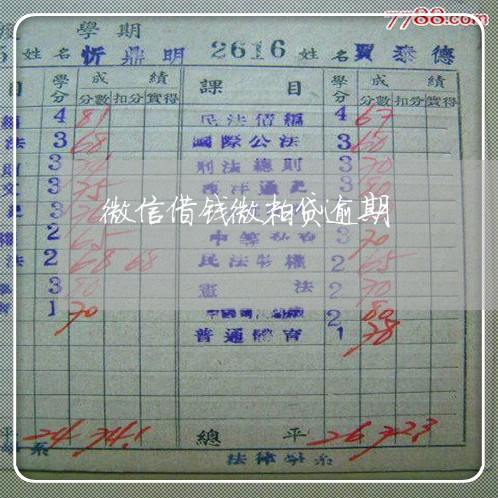 7788.com
學期
5 姓名 忻鼎明 2616 姓名 賈泰德
目 學分 成績 課目 學分 成績
分數 扣分 實得 分數 扣分 實得
4 81 民法債編 4 67
法 3 68 國際公法 3 60
3 刑法總則 3 70
3 75 西洋通史 3
微信借钱微粒贷逾期
2 65 3 70
法 2 68 68 民法物權 2 65
3 80 憲法 2 70
1 70 2 80
普通體育 1 78
平 24 74.1 總平 26 72.3
系 法律學系